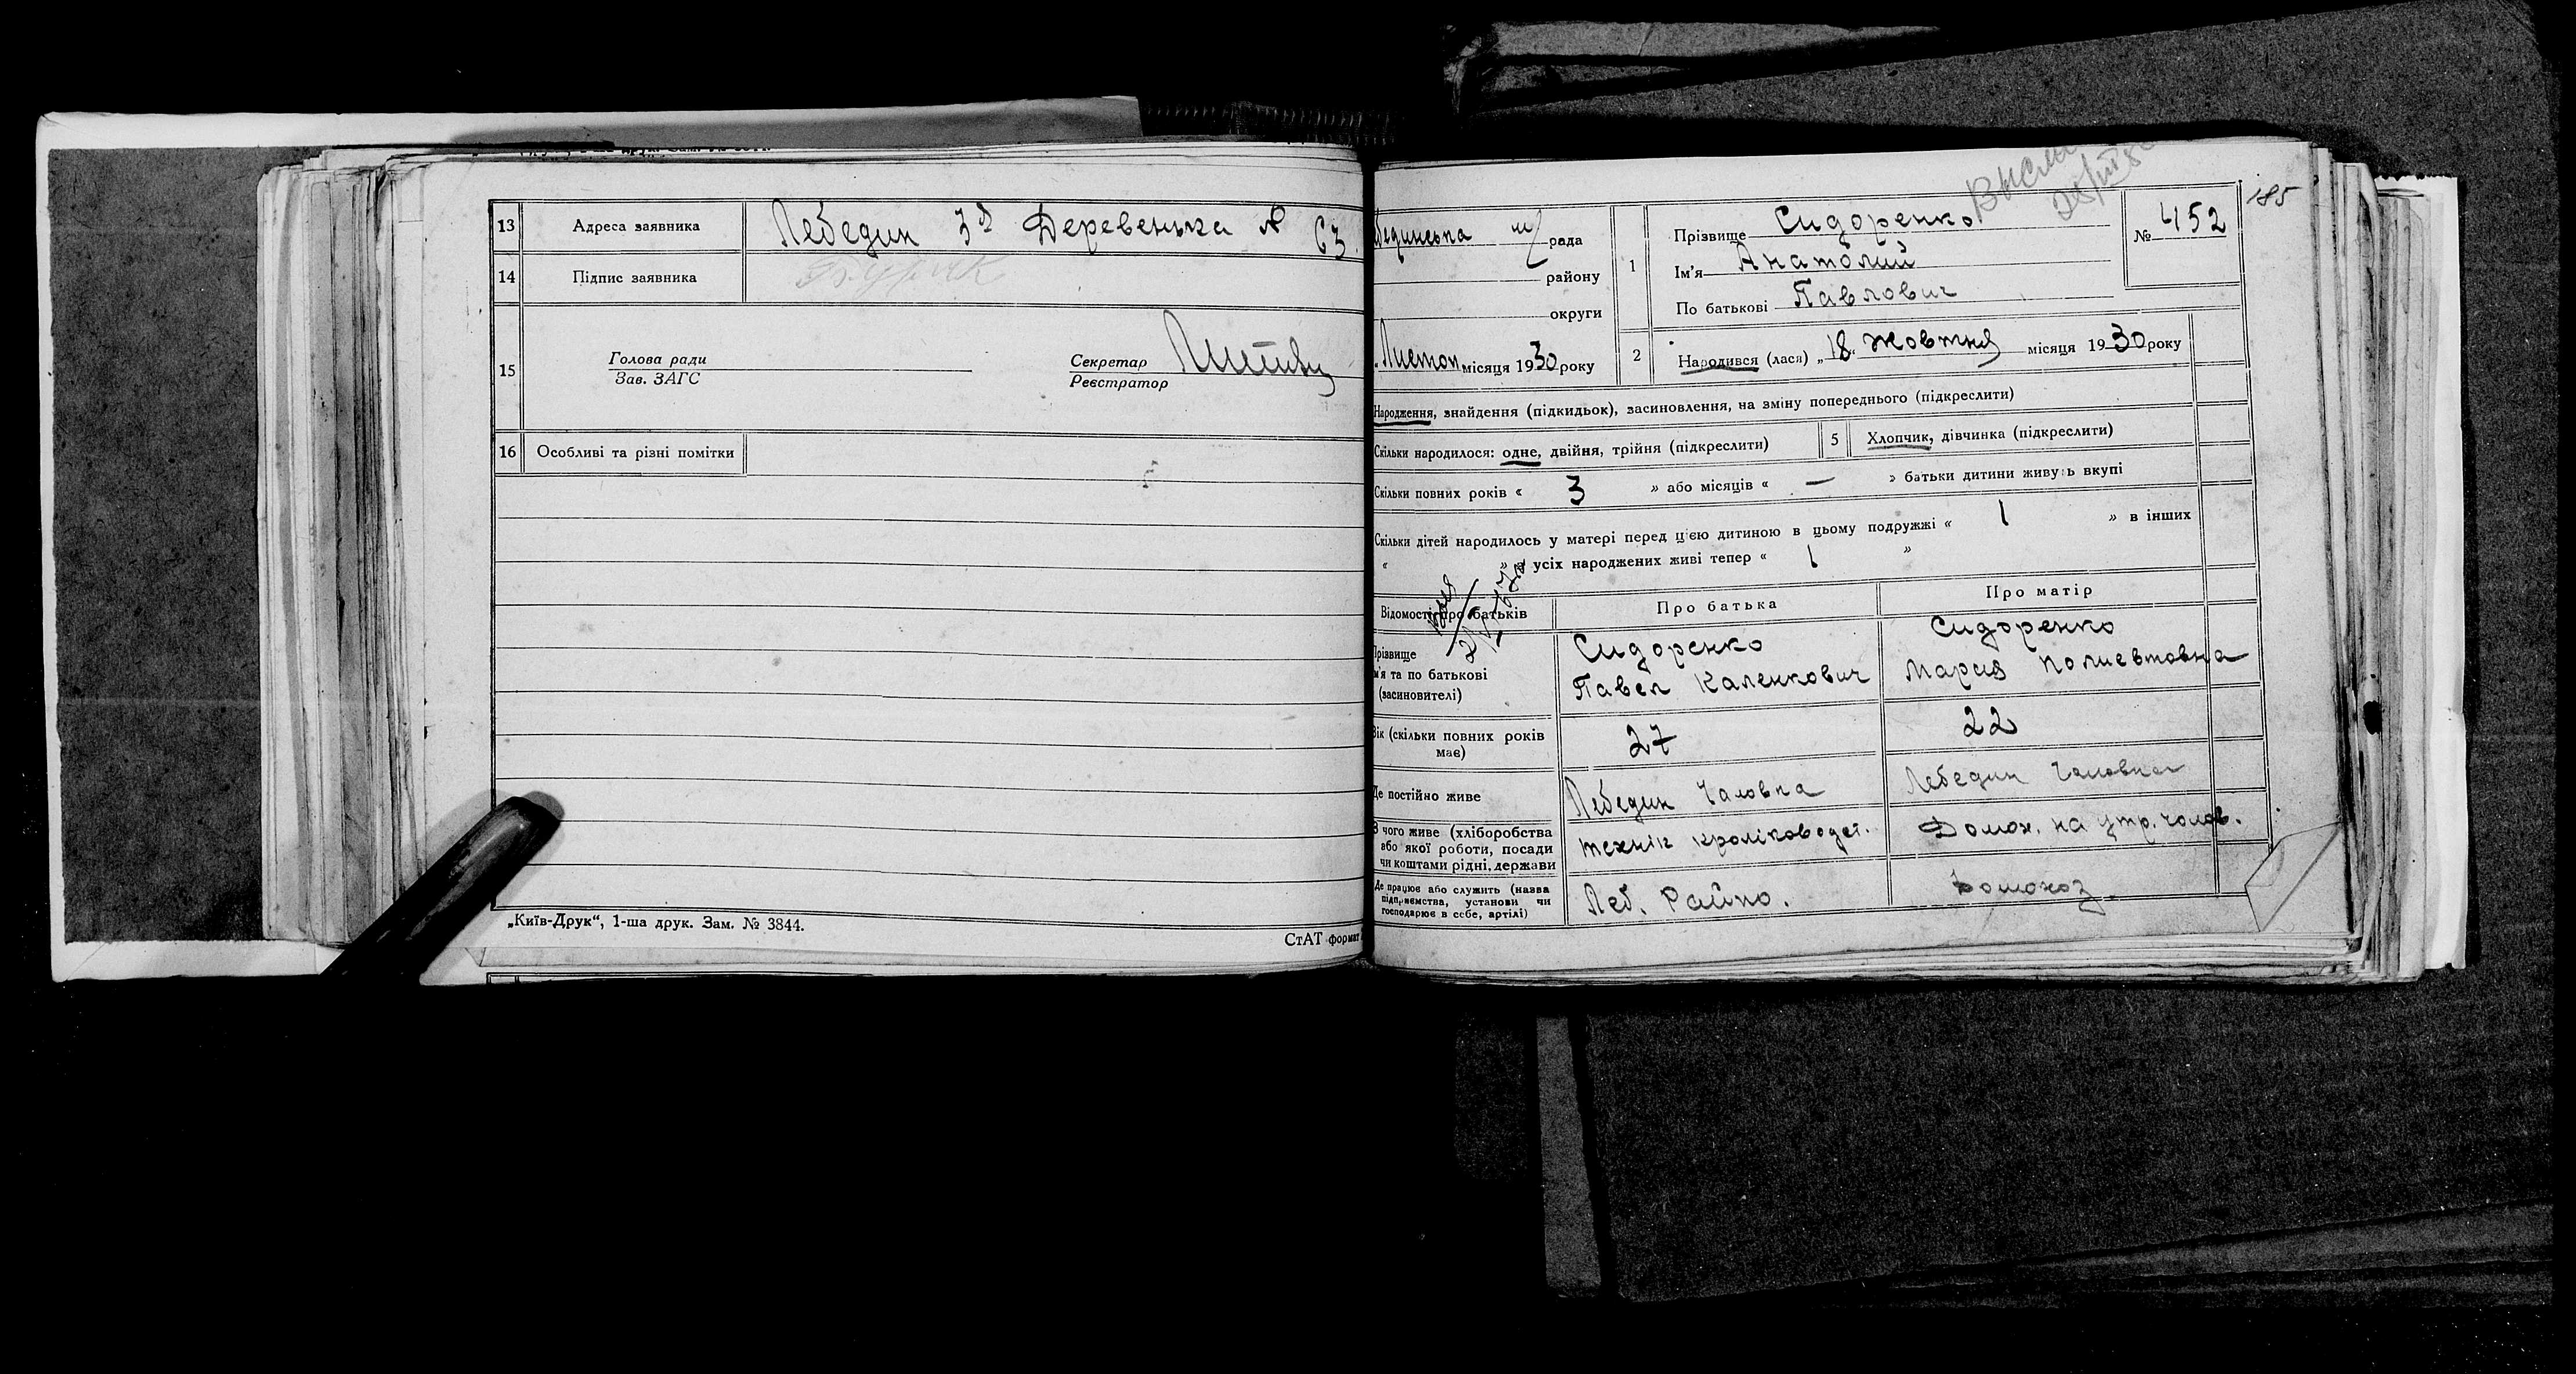 13 Адреса заявника Лебедин 3я Деревенька № 63.
14 Підпис заявника
15 Голова ради
Зав. ЗАГС
Секретар
Реєстратор
16 Особливі та різні помітки
„Київ-Друк“, 1-ша друк. Зам. № 3844.
СтАТ формат
185
бединська м/рада
району
округи
Листоп місяця 1930 року
1 Прізвище Сидоренко
№ 452
Ім'я Анатолий
По батькові Павлович
2 Народився (лася) „18“ Жовтня місяця 1930 року
Народження, знайдення (підкидьок), засиновлення, на зміну попереднього (підкреслити)
Скільки народилося: одне, двійня, трійня (підкреслити)
5 Хлопчик, дівчинка (підкреслити)
Скільки повних років « 3 » або місяців « — » батьки дитини живуть вкупі
Скільки дітей народилось у матері перед цією дитиною в цьому подружжі « 1 » в інших
« » з усіх народжених живі тепер « 1 »
Відомості про батьків Про батька Про матір
Прізвище
м'я та по батькові
(засиновителі)
Сидоренко
Павел Каленкович
Сидоренко
Мария Полиевтовна
Вік (скільки повних років має) 27 22
Де постійно живе Лебедин Лебедин
З чого живе (хліборобства
або якої роботи, посади
чи коштами рідні, держави
технік кроліководст.
Домох. на утр. чолов.
Де працює або служить (назва
підприємства, установи чи
господарює в себе, артілі)
Леб. Райпо.
Домохоз.